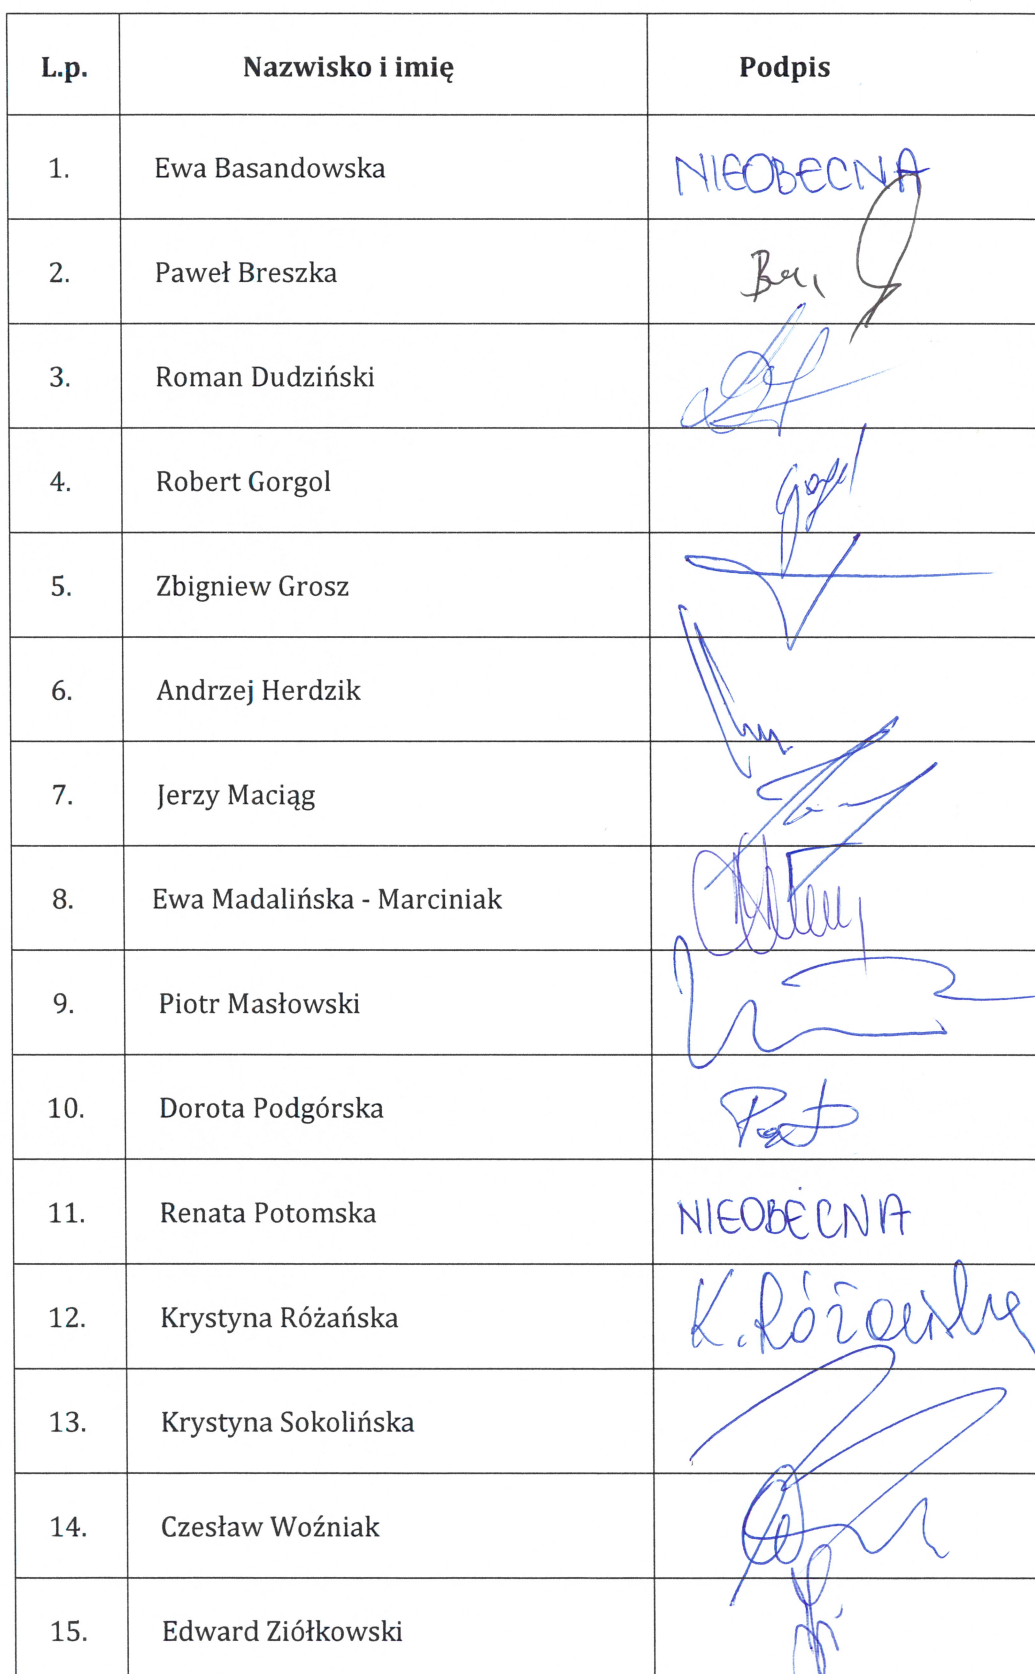 L.p. Nazwisko i imię Podpis
1. Ewa Basandowska NIEOBECNA
2. Paweł Breszka
3. Roman Dudziński
4. Robert Gorgol
5. Zbigniew Grosz
6. Andrzej Herdzik
7. Jerzy Maciąg
8. Ewa Madalińska - Marciniak
9. Piotr Masłowski
10. Dorota Podgórska
11. Renata Potomska NIEOBECNA
12. Krystyna Różańska K. Różańska
13. Krystyna Sokolińska
14. Czesław Woźniak
15. Edward Ziółkowski